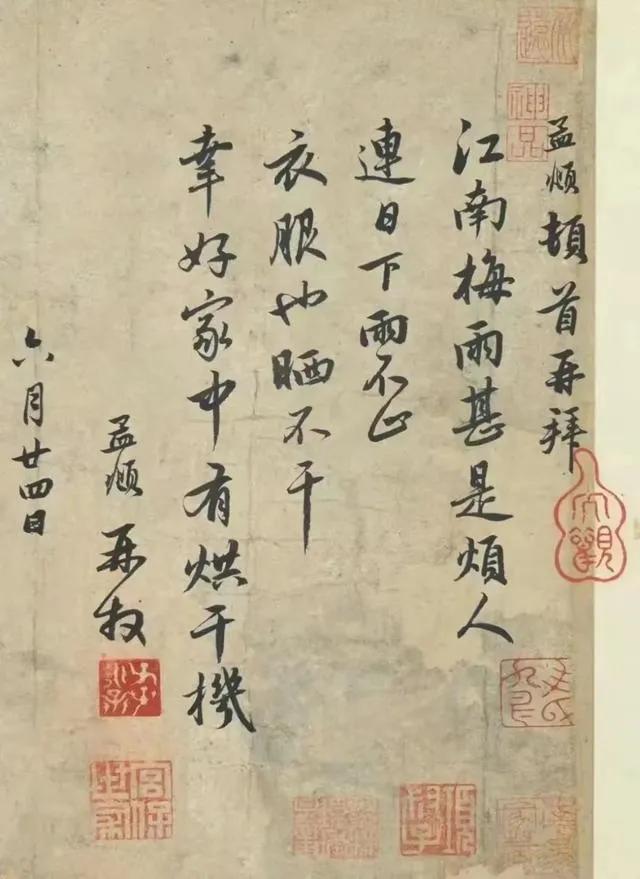 孟頫頓首再拜
江南梅雨甚是煩人
連日下雨不止
衣服也晒不干
幸好家中有烘干機
孟頫再拜
六月廿四日
神品
大觀
宮保世家